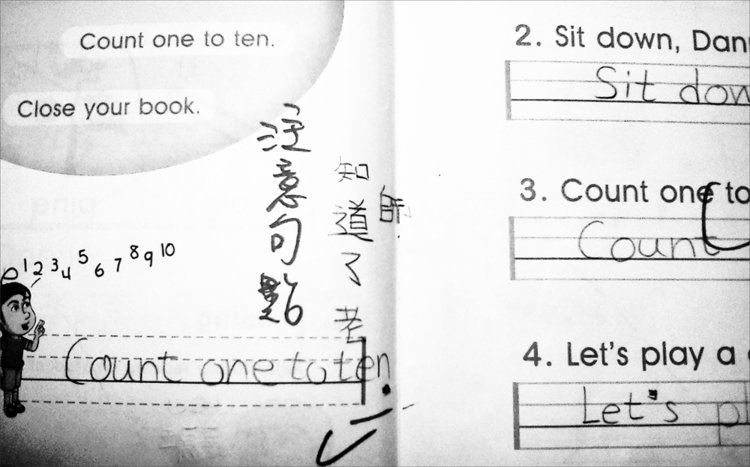 Count one to ten.
Close your book.
注意句點
知道了老
師
1 2 3 4 5 6 7 8 9 10
Count one to ten.
2. Sit down, Dan
Sit dow
3. Count one to
Count
4. Let's play a
Let's pl